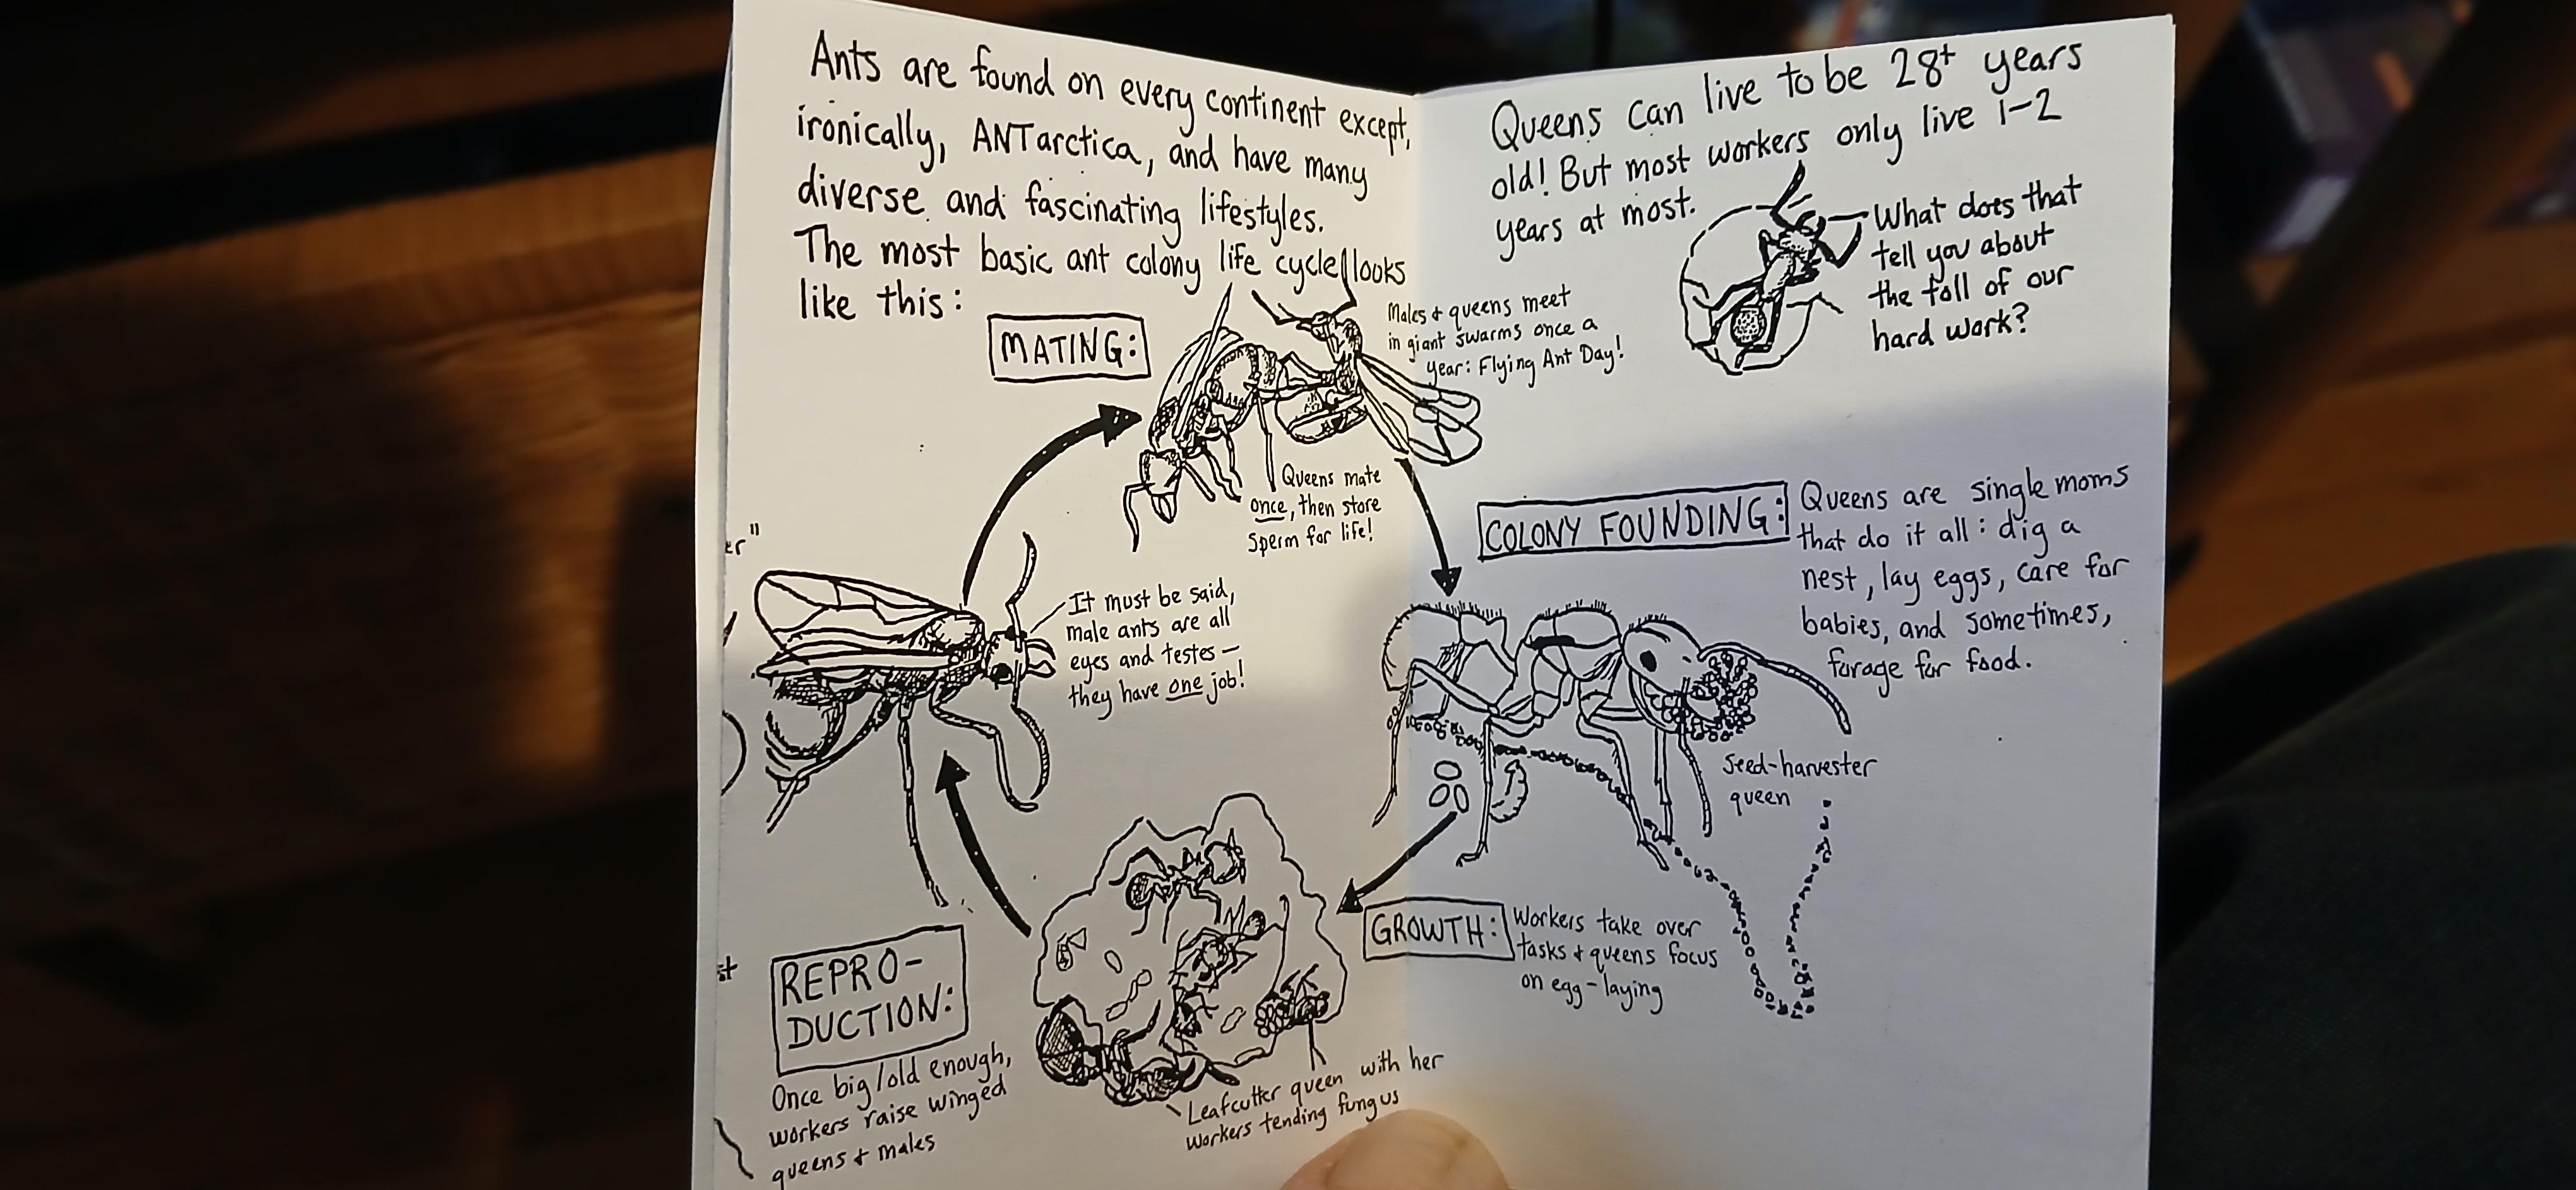 Ants are found on every continent except,
ironically, ANTarctica, and have many
diverse and fascinating lifestyles.
The most basic ant colony life cycle looks
like this:
MATING:
Males + queens meet
in giant swarms once a
year: Flying Ant Day!
Queens mate
once, then store
sperm for life!
er"
It must be said,
male ants are all
eyes and testes—
they have one job!
st
REPRO-
DUCTION:
Once big/old enough,
workers raise winged
queens + males
Leafcutter queen with her
workers tending fungus
Queens can live to be 28+ years
old! But most workers only live 1-2
years at most.
What does that
tell you about
the toll of our
hard work?
COLONY FOUNDING:
Queens are single moms
that do it all: dig a
nest, lay eggs, care for
babies, and sometimes,
forage for food.
Seed-harvester
queen
GROWTH:
Workers take over
tasks + queens focus
on egg-laying